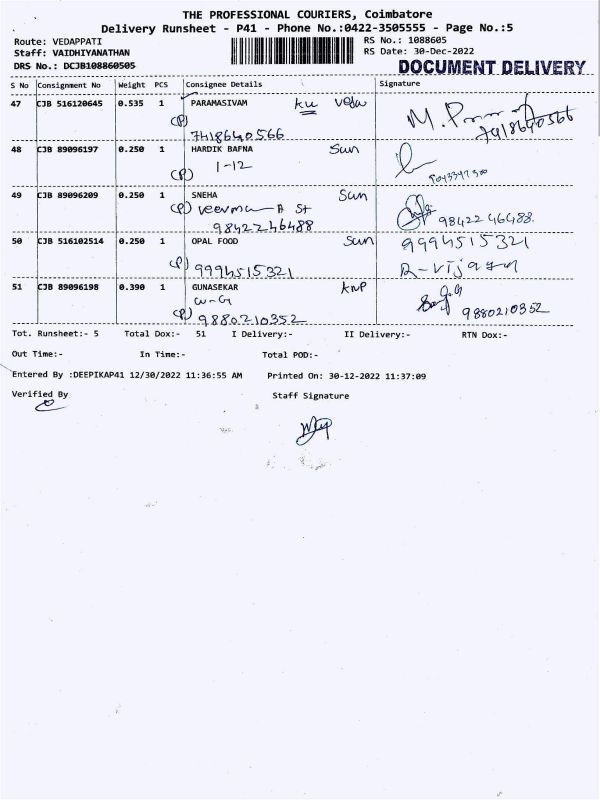 THE PROFESSIONAL COURIERS, Coimbatore
Delivery Runsheet - P41 - Phone No.:0422-3505555 - Page No.:5
Route: VEDAPPATI RS No.: 1088605
Staff: VAIDHIYANATHAN RS Date: 30-Dec-2022
DRS No.: DCJB108860505 DOCUMENT DELIVERY
S No Consignment No Weight PCS Consignee Details Signature
47 CJB 516120645 0.535 1 PARAMASIVAM ku veda
(P) 7418640566 7418640566
48 CJB 89096197 0.250 1 HARDIK BAFNA Sun
(P) 1-12
49 CJB 89096209 0.250 1 SNEHA Sun
(P) veerma A St
9842246488 9842246488
50 CJB 516102514 0.250 1 OPAL FOOD Sun 9994515321
(P) 9994515321
51 CJB 89096198 0.390 1 GUNASEKAR KNP
W-G
(P) 9880210352 9880210352
Tot. Runsheet:- 5 Total Dox:- 51 I Delivery:- II Delivery:- RTN Dox:-
Out Time:- In Time:- Total POD:-
Entered By :DEEPIKAP41 12/30/2022 11:36:55 AM Printed On: 30-12-2022 11:37:09
Verified By Staff Signature